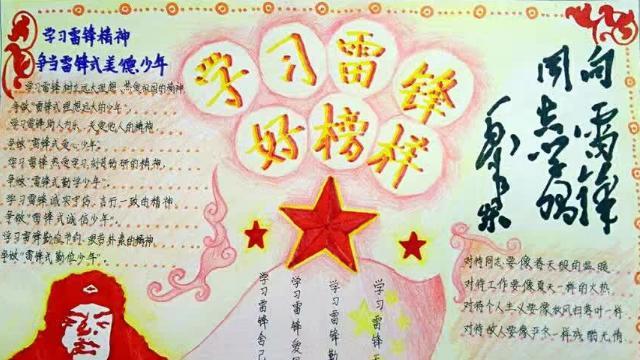 学习雷锋精神
争当雷锋式美德少年
学习雷锋 树立远大理想、热爱祖国的精神
争做“雷锋式理想远大的少年”。
学习雷锋 助人为乐、关爱他人的精神
争做“雷锋式爱心少年”。
学习雷锋 热爱学习、刻苦钻研的精神,
争做“雷锋式勤学少年”。
学习雷锋 诚实守信、言行一致的精神
争做“雷锋式诚信少年”。
学习雷锋勤俭节约、艰苦朴素的精神
争做“雷锋式勤俭少年”。
学习雷锋
好榜样
向雷锋
同志学习
毛泽东
学习雷锋舍己
学习雷锋爱
学习雷锋勤
学习雷锋
对待同志要像春天般的温暖
对待工作要像夏天一样的火热
对待个人主义要像秋风扫落叶一样
对待敌人要像严冬一样残酷无情